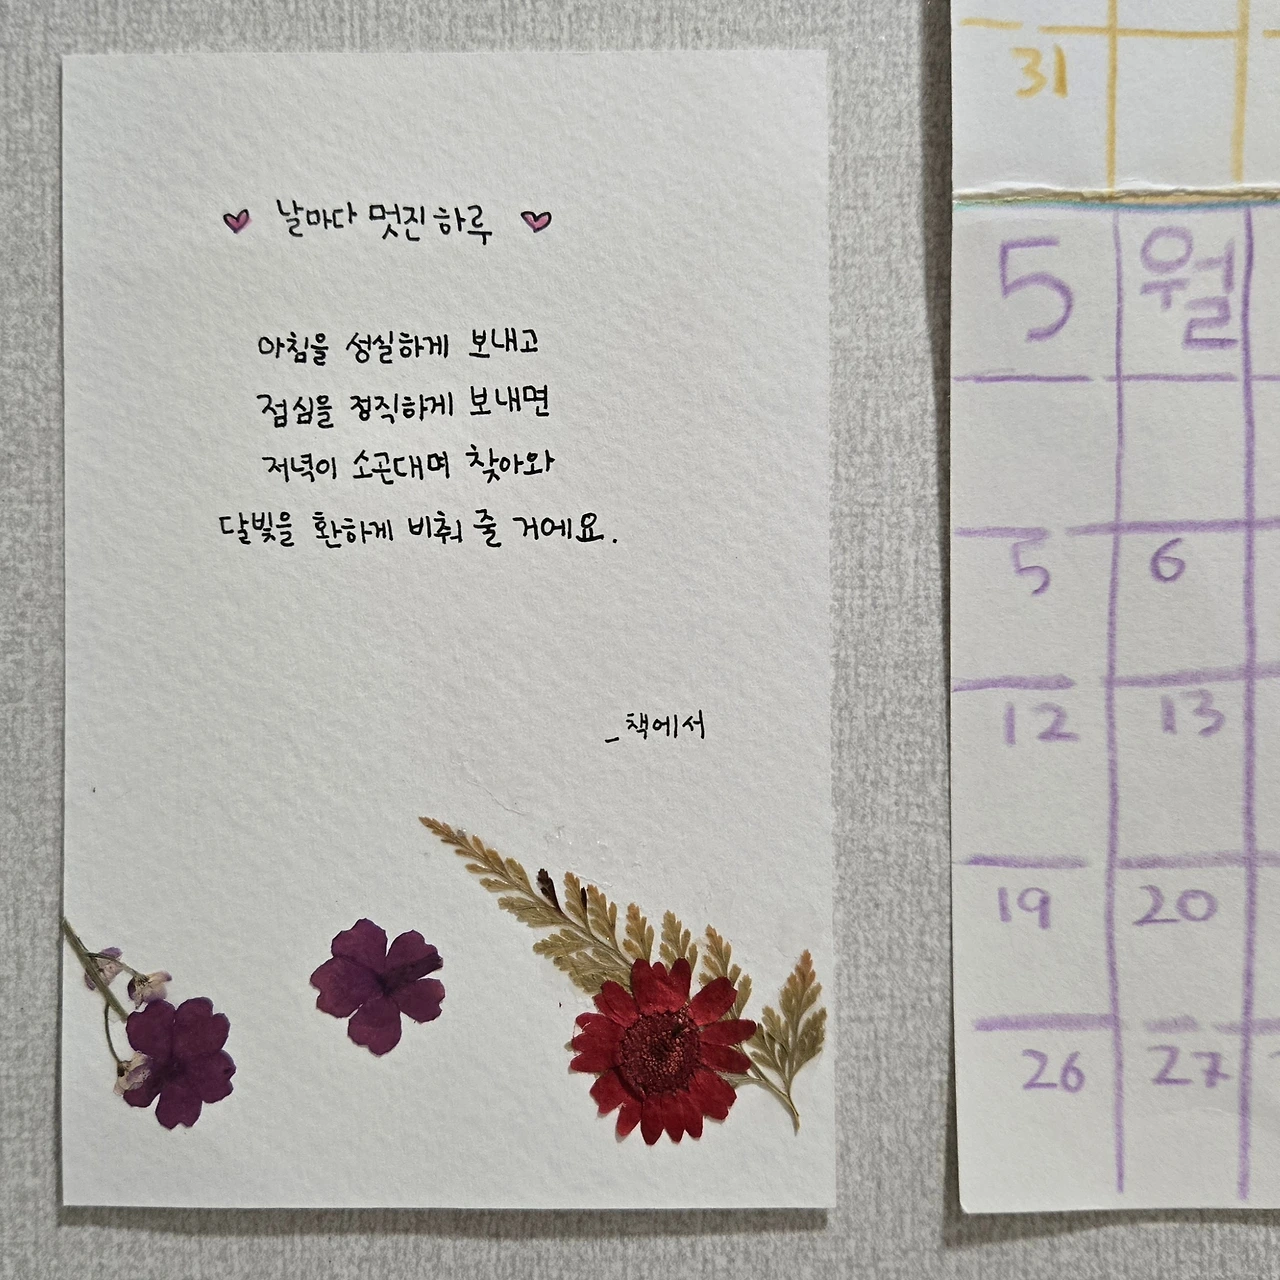 날마다 멋진 하루
아침을 성실하게 보내고
점심을 정직하게 보내면
저녁이 소곤대며 찾아와
달빛을 환하게 비춰 줄 거에요.
_책에서
31
5월
5 6
12 13
19 20
26 27